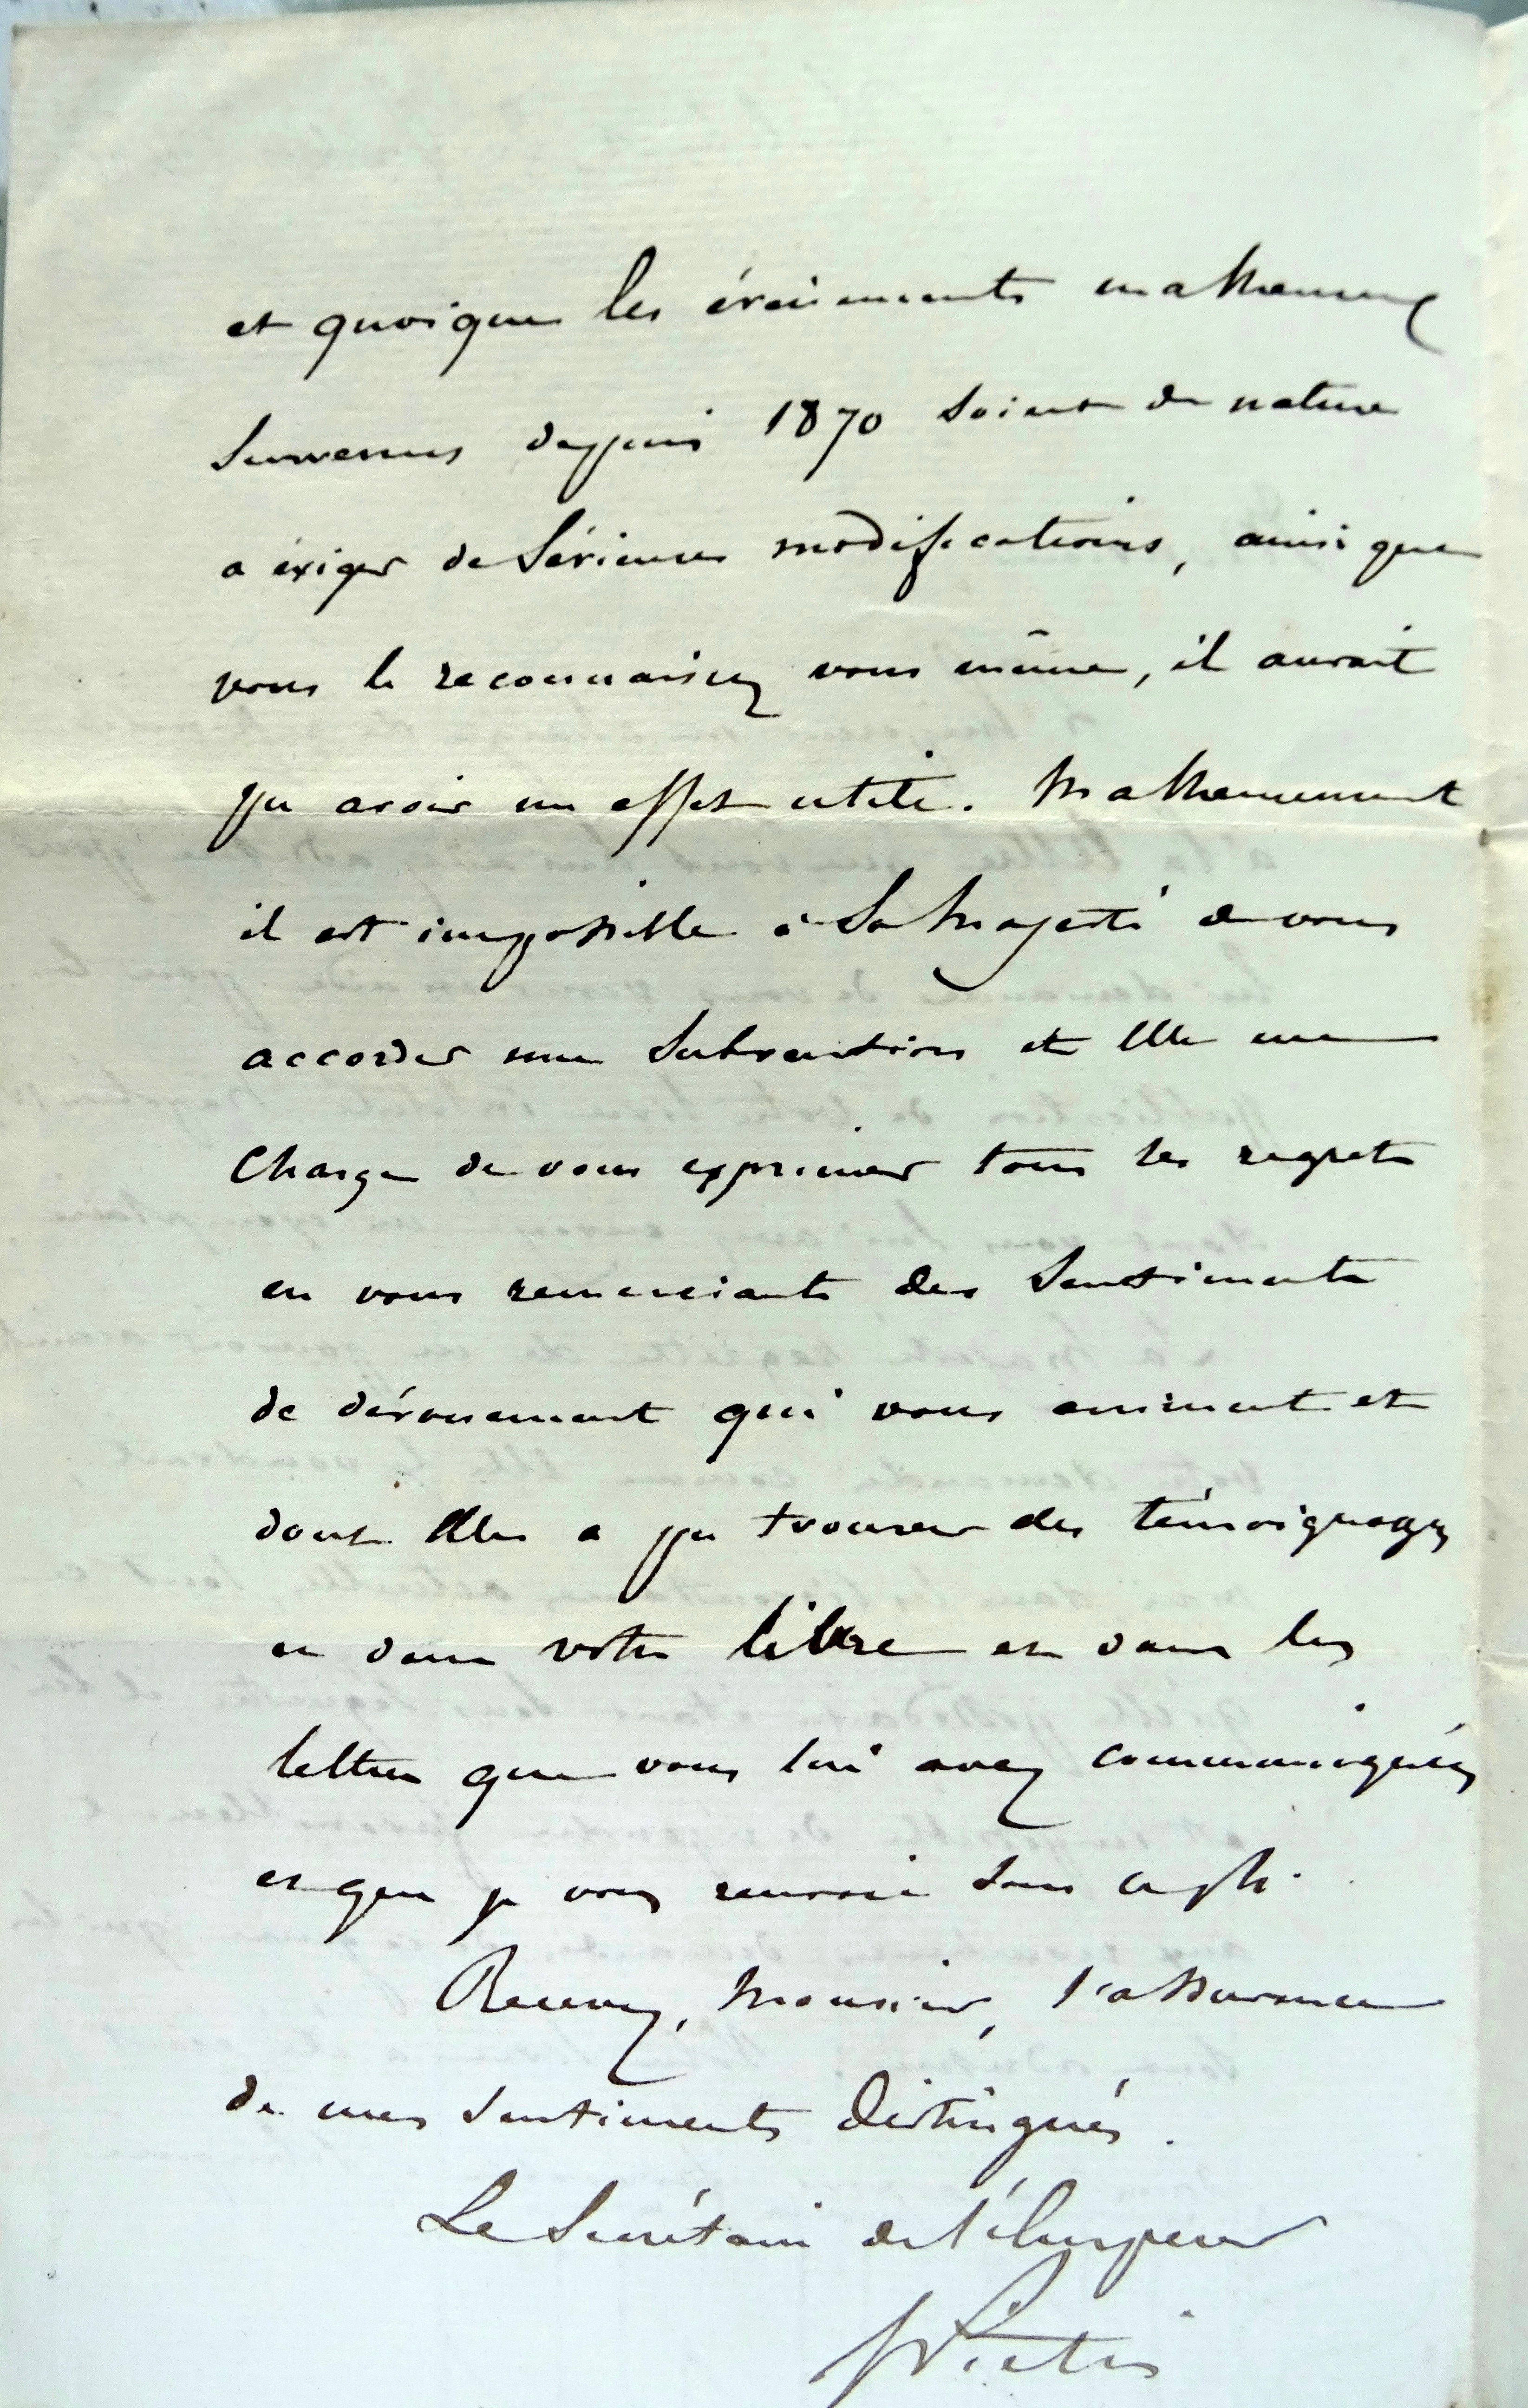 et quoique les évènements malheureux
survenus depuis 1870 soient de nature
a exiger de sérieuses modifications, ainsi que
vous le reconnaissez vous même, il aurait
pu avoir un effet utile. Malheureusement
il est impossible à Sa Majesté de vous
accorder une subvention et Elle me
charge de vous exprimer tous ses regrets
en vous remerciant des sentiments
de dévouement qui vous animent et
dont Elle a pu trouver des témoignages
et dans votre libre et dans les
lettres que vous lui avez communiquées
et que je vous renvoie sous ce pli.
Recevez, Monsieur, l'assurance
de mes sentiments distingués.
Le Secrétaire de l'Empereur
Pietri